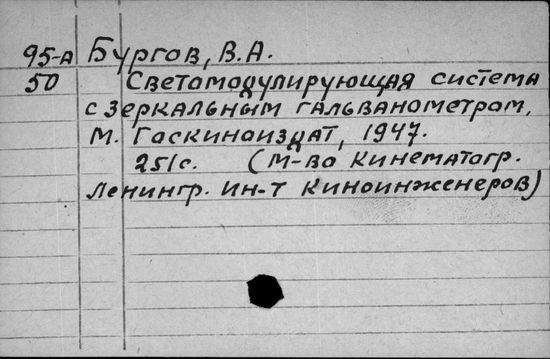 95-А Бургов, В.А.
50 Светомодулирующая система
с зеркальным гальванометром,
М. Госкиноиздат, 1947.
251с. (М-во кинематогр.
Ленингр. ин-т киноинженеров)